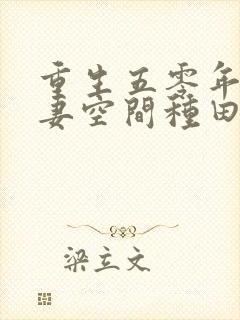 重生五零年
妻空間種田
梁立文